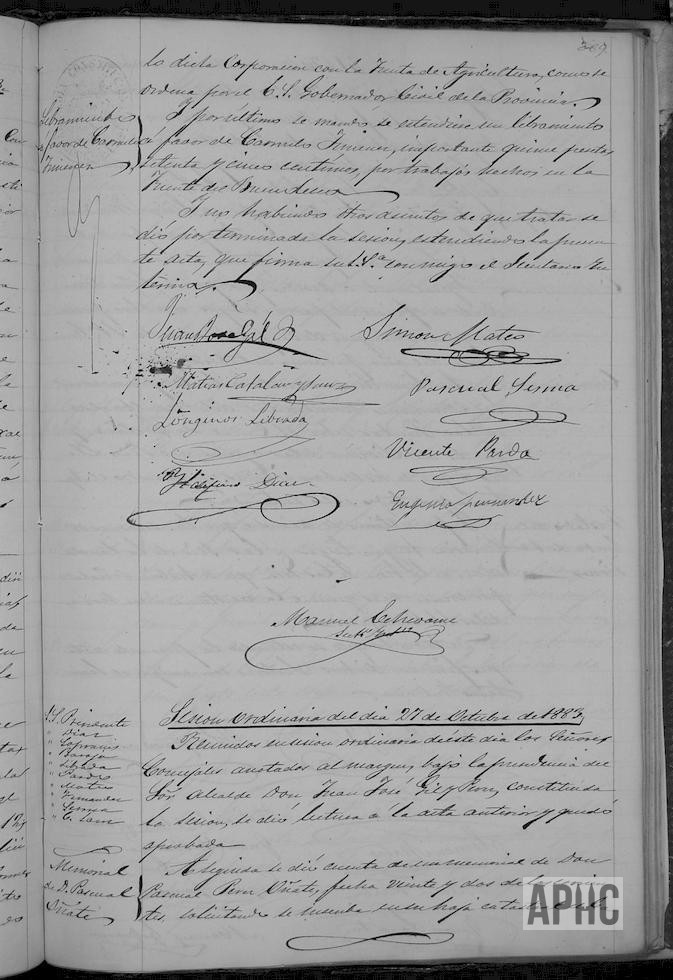 369.
to dicta Corporacion con la Junta de Agricultura, como se
ordena por el E. S. Gobernador Civil de la Provincia.
Libramiento
a favor de Carmelo
Jimenez
Y por último se mandó se estendiese un libramiento
á favor de Carmelo Jimenez, importante quince pesetas
setenta y cinco centimos, por trabajos hechos en la
Fuente del
Y no habiendo otros asuntos de que tratar se
dió por terminada la sesion, estendiendo la presen
te acta, que firma su S.ª conmigo el Secretario In
terino.
Juan José Gil
Simon Mateo
Matias Catalan y Sanz
Pascual Serma
Longinos Librada
Vicente Pardo
Diaz
Eugenio Fernandez
Manuel
Sesion ordinaria del dia 27 de Octubre de 1883,
S.S. Presidente
" Diaz
" Librada
" Pardo
" Mateo
" Fernandez
" Serma
Reunidos en sesion ordinaria de este dia los Señores
Concejales anotados al margen, bajo la presidencia del
Sor. Alcalde Don Juan José Gil y Peon, constituida
la sesion, se dió lectura á la acta anterior y quedó
aprobada
Memorial
de D. Pascual
Oñate
A seguida se dió cuenta de un memorial de Don
Pascual Oñate, fecha veinte y dos de los corrien
tes, solicitando se
APHC